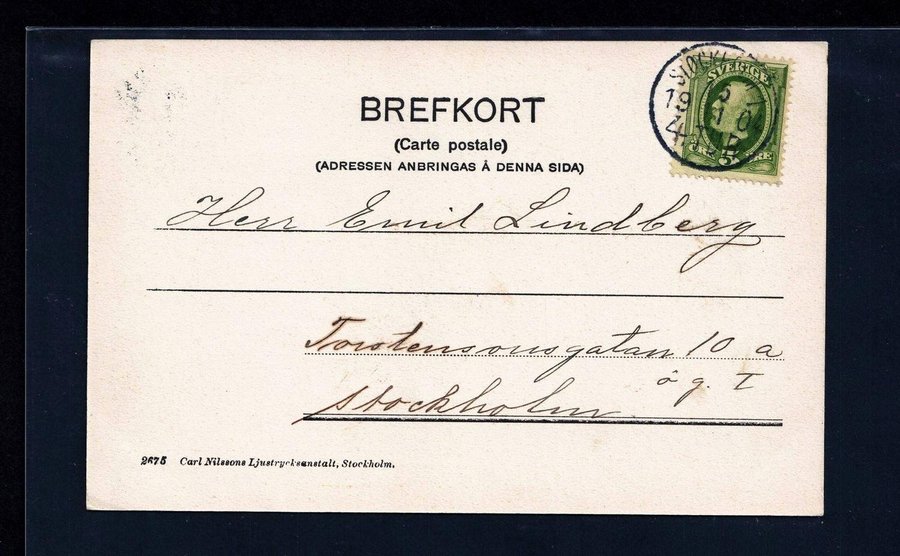 BREFKORT
(Carte postale)
(ADRESSEN ANBRINGAS Å DENNA SIDA)
SVERIGE
19
Herr Emil Lindberg
Torstensonsgatan 10 a
ö g. I
Stockholm
2675 Carl Nilssons Ljustrycksanstalt, Stockholm.